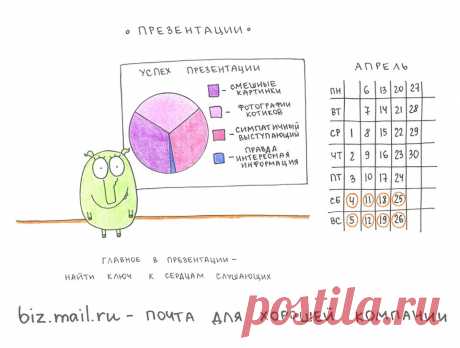 • ПРЕЗЕНТАЦИИ •
УСПЕХ ПРЕЗЕНТАЦИИ
- СМЕШНЫЕ
КАРТИНКИ
- ФОТОГРАФИИ
КОТИКОВ
- СИМПАТИЧНЫЙ
ВЫСТУПАЮЩИЙ
- ПРАВДА
ИНТЕРЕСНАЯ
ИНФОРМАЦИЯ
АПРЕЛЬ
ПН 6 13 20 27
ВТ 7 14 21 28
СР 1 8 15 22 29
ЧТ 2 9 16 23 30
ПТ 3 10 17 24
СБ 4 11 18 25
ВС 5 12 19 26
ГЛАВНОЕ В ПРЕЗЕНТАЦИИ -
НАЙТИ КЛЮЧ К СЕРДЦАМ СЛУШАЮЩИХ
biz.mail.ru - ПОЧТА ДЛЯ ХОРОШЕЙ КОМПАНИИ
postila.ru